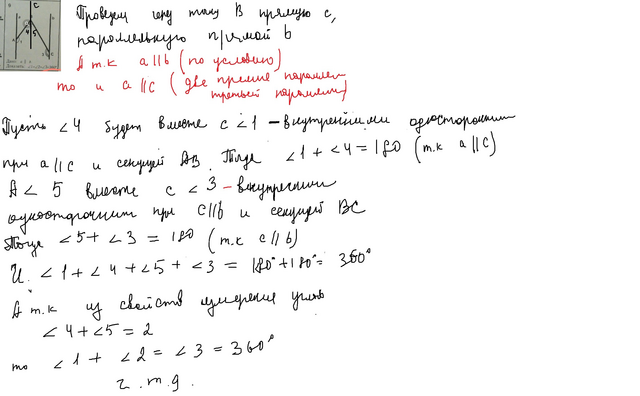 C
4 5
Проведем через точку B прямую c,
параллельную прямой b
А т.к a||b (по условию)
то и a||c (две прямые параллельн
третьей параллельны)
Пусть ∠4 будет вместе с ∠1 - внутренними односторонним
при a||c и секущей AB. Тогда ∠1+∠4=180 (т.к a||c)
А ∠5 вместе с ∠3 - внутренним
односторонним при c||b и секущей BC
Тогда ∠5+∠3 = 180 (т.к c||b)
И. ∠1+∠4+∠5+∠3 = 180°+180°= 360°
А т.к из свойств измерения углов
∠4+∠5=2
то ∠1 + ∠2 = ∠3 = 360°
ч.т.д.